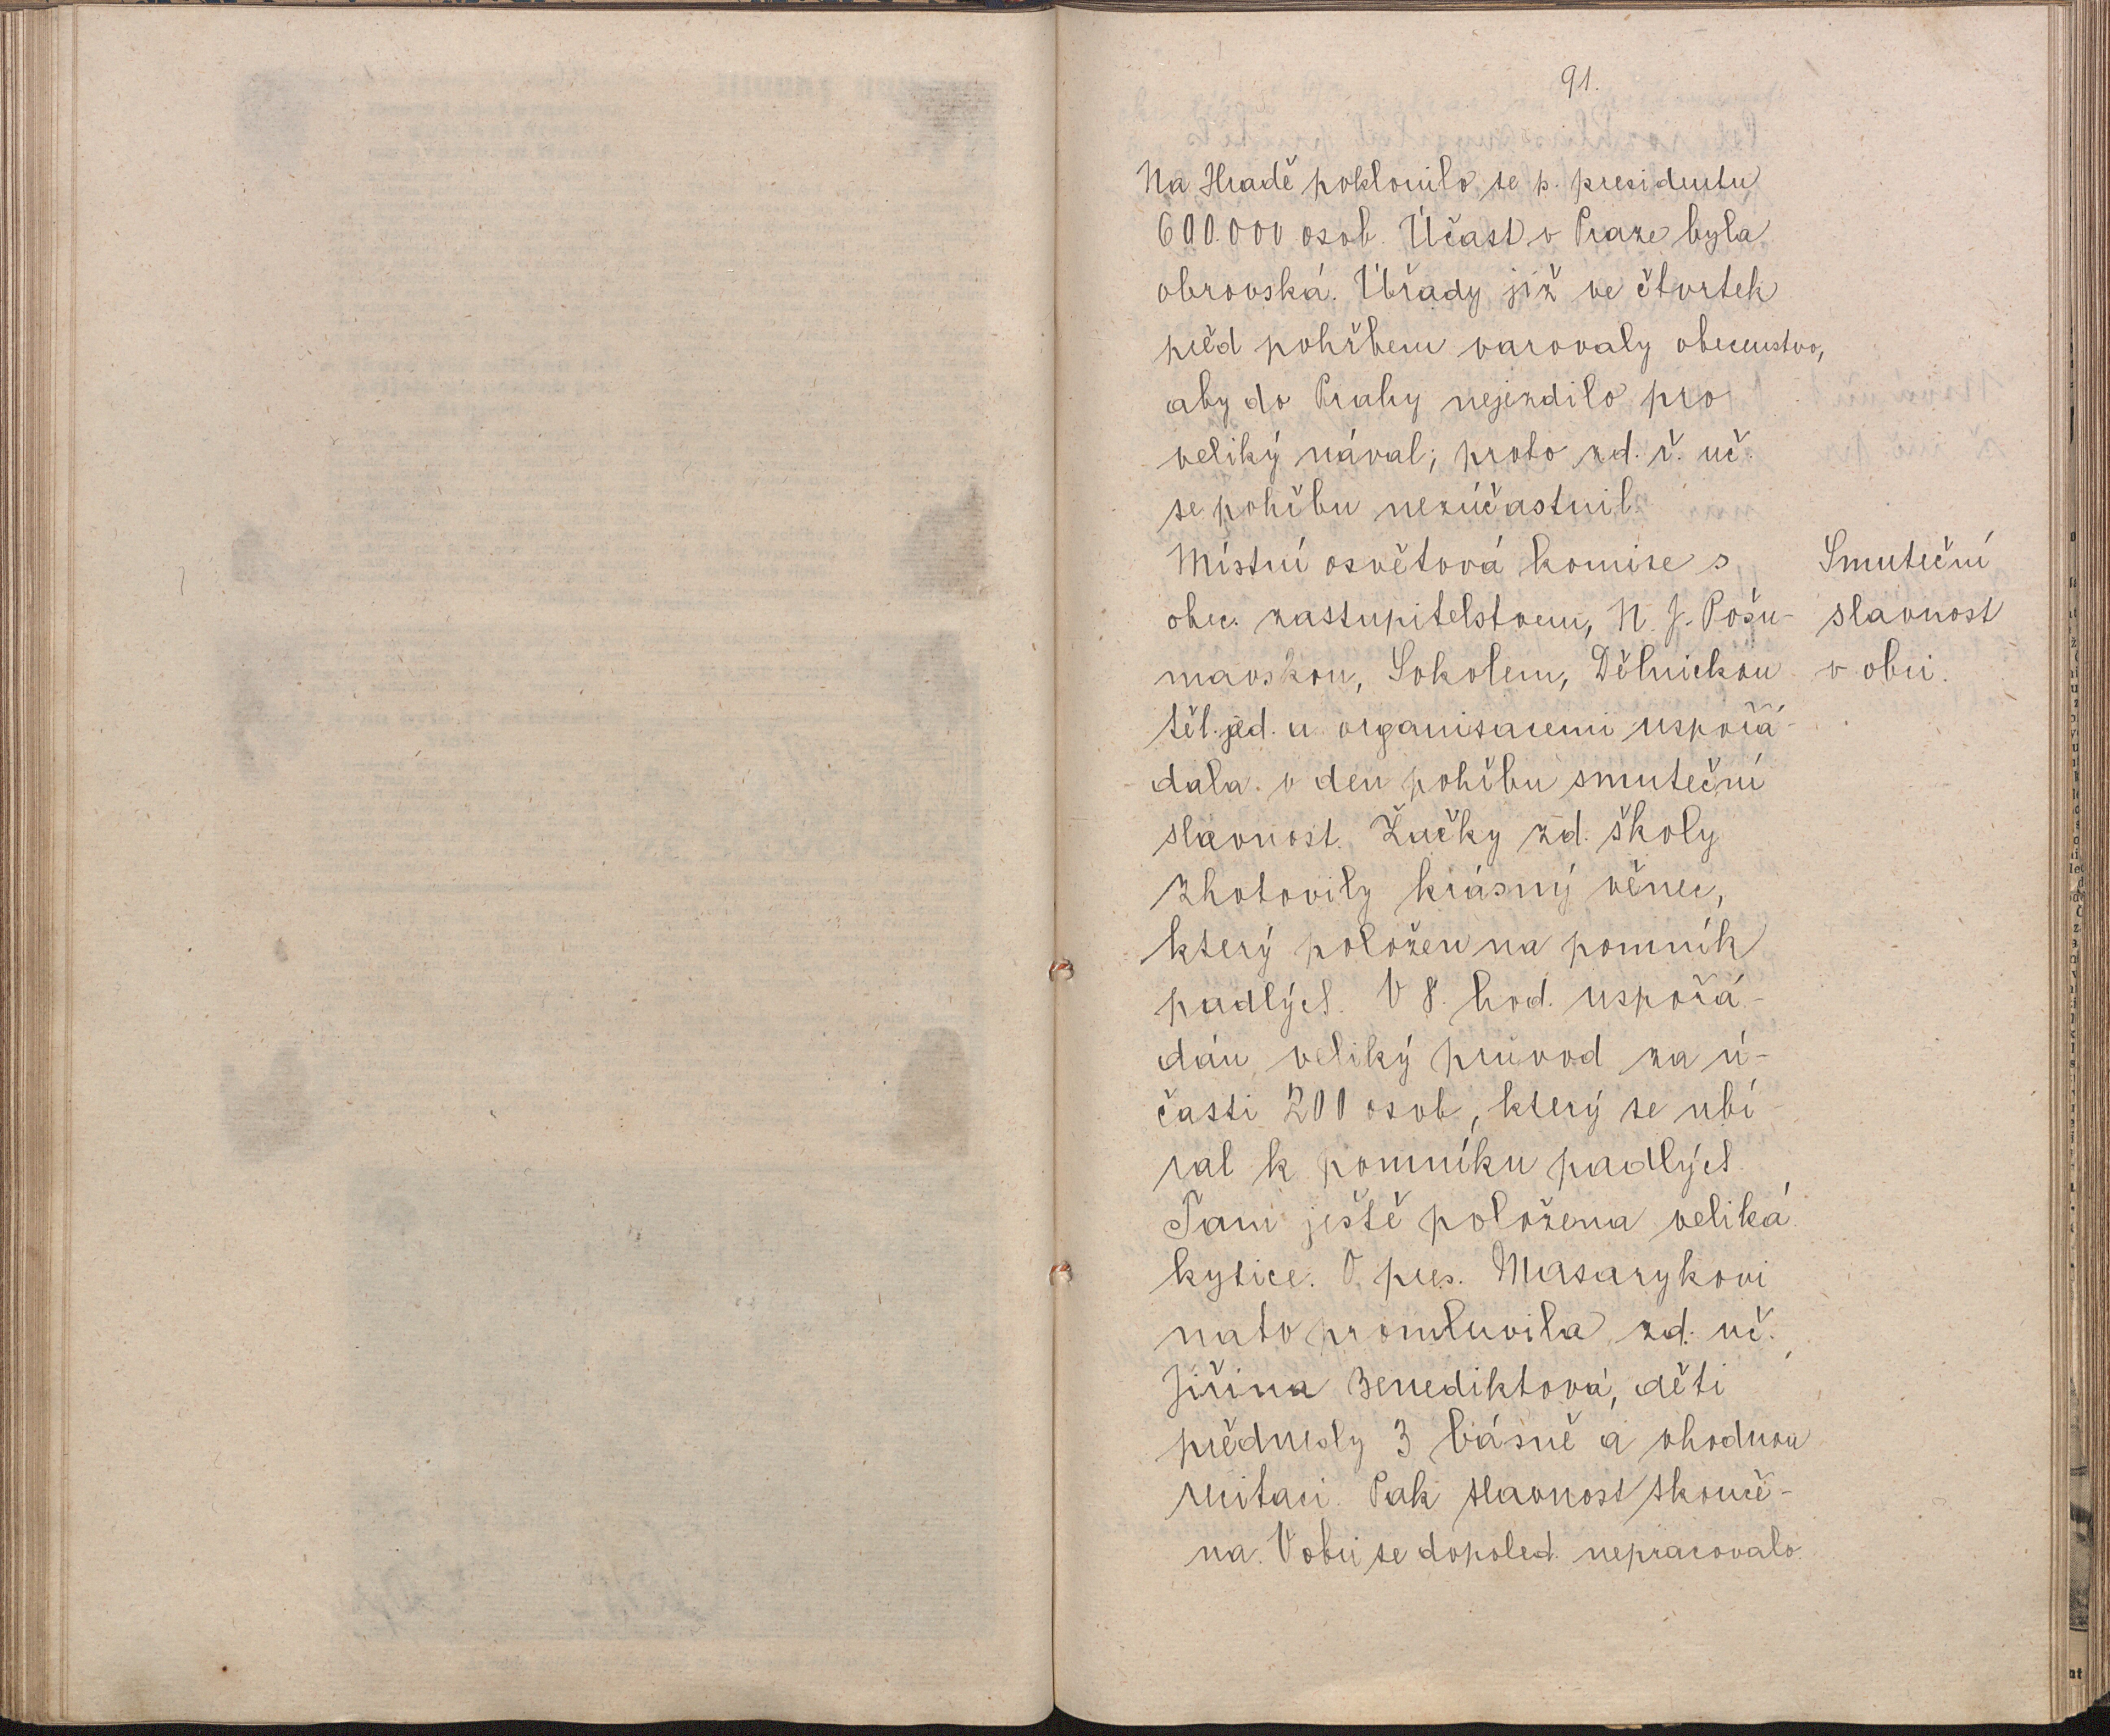 91.
Na Hradě poklonilo se p. presidentu
600.000 osob. Účast v Praze byla
obrovská. Úřady již ve čtvrtek
před pohřbem varovaly obecenstvo,
aby do Prahy nejezdilo pro
veliký nával; proto zd. ř. uč.
se pohřbu nezúčastnil.
Místní osvětová komise s
obec. zastupitelstvem, N. J. Pošu-
mavskou, Sokolem, Dělnickou
těl. jed. a organisacemi uspořá-
dala v den pohřbu smuteční
slavnost. Žačky zd. školy
zhotovily krásný věnec,
který položen na pomník
padlých. V 8. hod. uspořá-
dán veliký průvod za ú-
časti 200 osob, který se ubí-
ral k pomníku padlých.
Tam ještě položena veliká
kytice. O pres. Masarykovi
nato promluvila zd. uč.
Jiřina Benediktová, děti
přednesly 3 básně a vhodnou
recitaci. Pak slavnost skonče-
na. V obci se dopoled. nepracovalo.
Smuteční
slavnost
v obci.